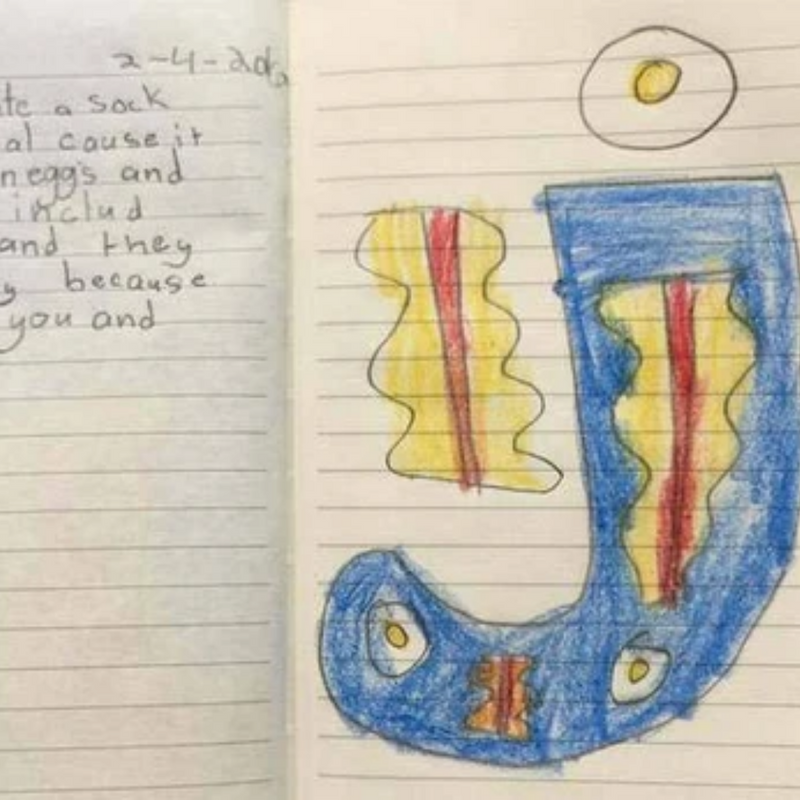 2-4-20
te a sock
al cause it
n eggs and
includ
and they
y because
you and